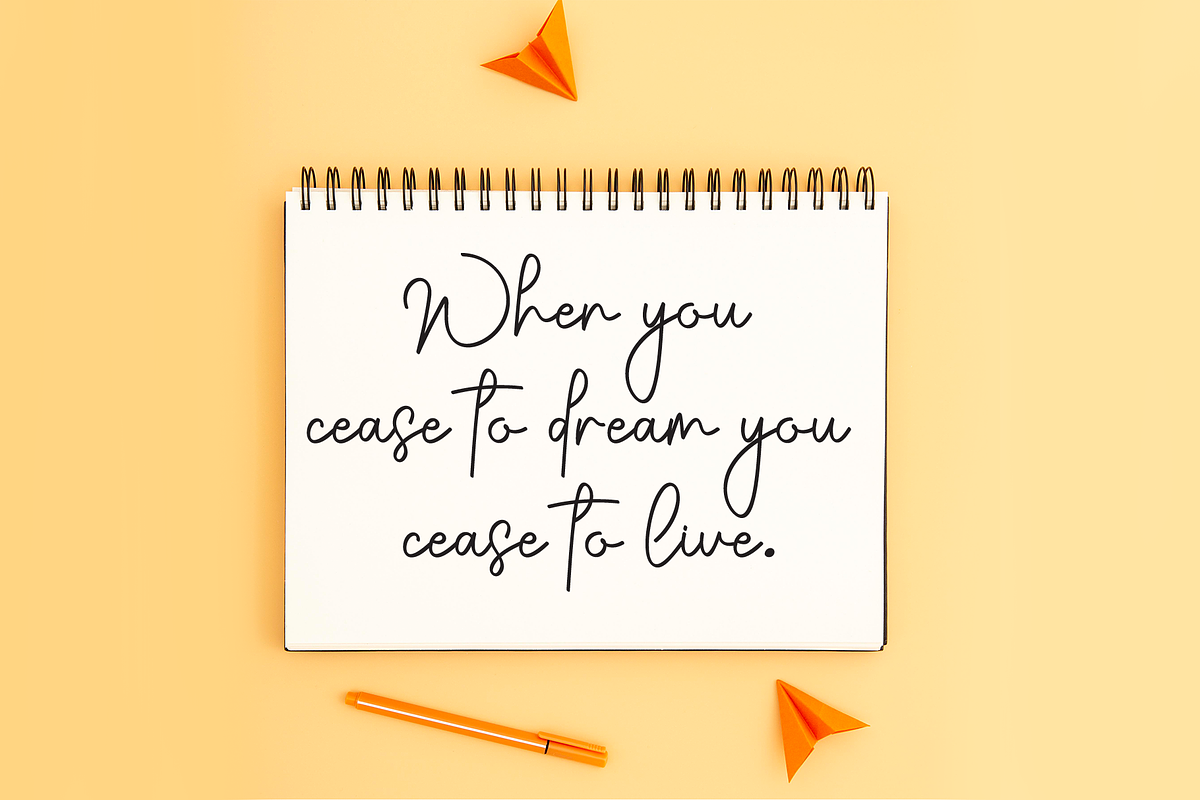 When you
cease to dream you
cease to live.